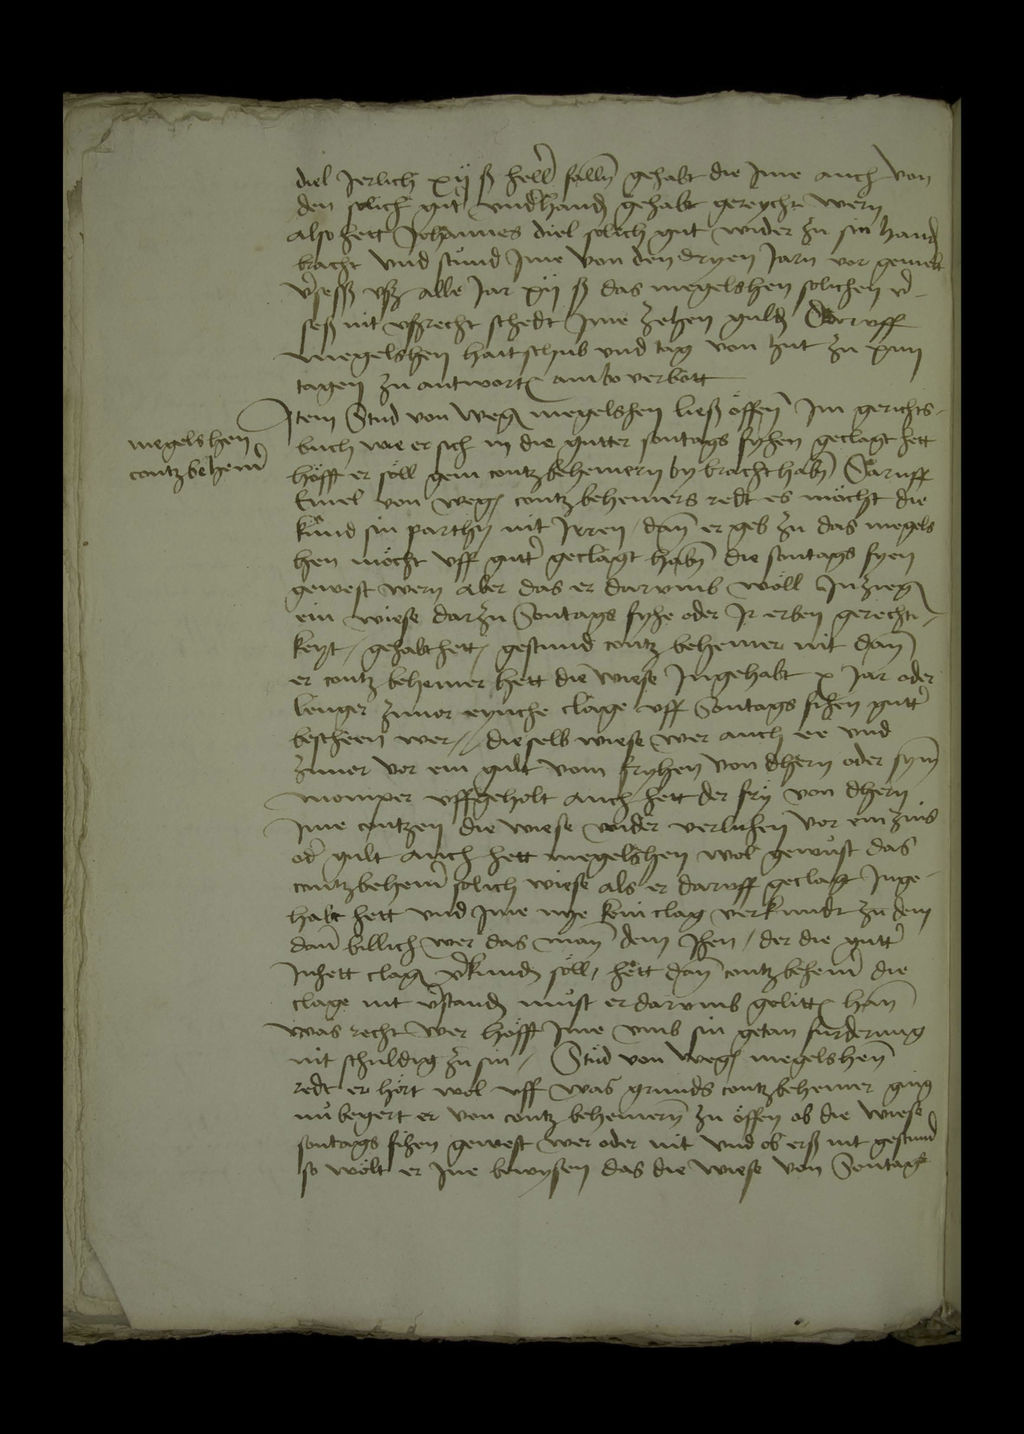 diel Jerlich xij ß hell̄ falln̄ gehabt die Jme auch von
den solich gut vnd̄handꝭ gehabt gereycht wern
also hett Johannes diel solich gut wider zu sin hand
bracht vnd stund Jme von den dryen Jarn vor gemelt
v̄sess vß alle Jar xij ß das megelshen solichen v̄-
seß nit vßrecht schedt Jme zehen guldꝭ Daruff
megelshen hait schub vnd tag von hut zu xiiij
tagen zu antwortꝭ ambo verbott
Item Stud von wegꝭ megelshen ließ offen̄ Jm gerichts-
megelshen
contz behem̄
buch wie er sich in die gutter sontags fyhen geclagt hett
hofft er soll gein contz behemern by bracht habn̄ Daruff
Emel von wegꝭ contz behemers redt es mocht die
kund sin parthy nit Jrren / dan̄ er geb zu das megels
hen mocht vff gutt̄ geclagt habn̄ die sontags fyen
gewest wern aber das er darumb woll Inziegꝭ
ein wiese darzu Sontags fyhe oder Jr erben gerechti-
keyt / gehabt hett / gestund contz behemer nit dan̄
er contz behemer hett die wiese Jngehabt x Jar oder
lenger zuuor eyniche clage vff Sontags fihen gutt̄
bescheen wer // dieselb wiese wer auch ee vnd
zuuer vor ein gult vom fryhen von dhern oder sym̄
momper vffgeholt auch hett der fry von dhern
Jme contzen die wiese wider verluhen vor ein zins
od̄ gult auch hett megelshen wol gewust das
contz behem̄ solich wiese als er daruff geclagt Jnge-
habt hett vnd Jme nye kein clag verkundt zu dem
dan̄ billich wer das man̄ dem Jhen / der die gutt̄
Jnhett clagꝭ v̄kundꝭ soll / hett dan̄ contz behem̄ die
clage nit v̄standꝭ must er darumb gelittꝭ han̄
was recht wer hofft Jme vmb sin getan furderung
nit schuldig zu sin / Stud von wegꝭ megelshen̄
redt er hort wol vff was grunds contz behemer ging
nu begert er von contz behemern̄ zu offen ob die wiese
sontags fihen gewest wer oder nit vnd ob erß nit gestund
so wolt er Jne bewysen das die wiese von Sontag